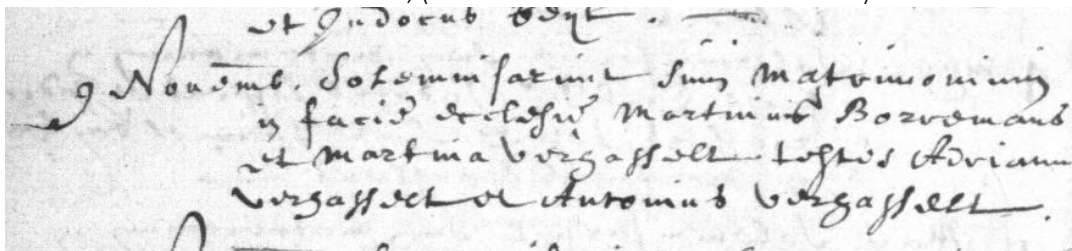 et Judocus
9 Novemb. Solemnisarunt suu Matrimonium
in facie ecclesie Martinus Borremans
et Martina verhasselt testes Adrianus
verhasselt et Antonius verhasselt.